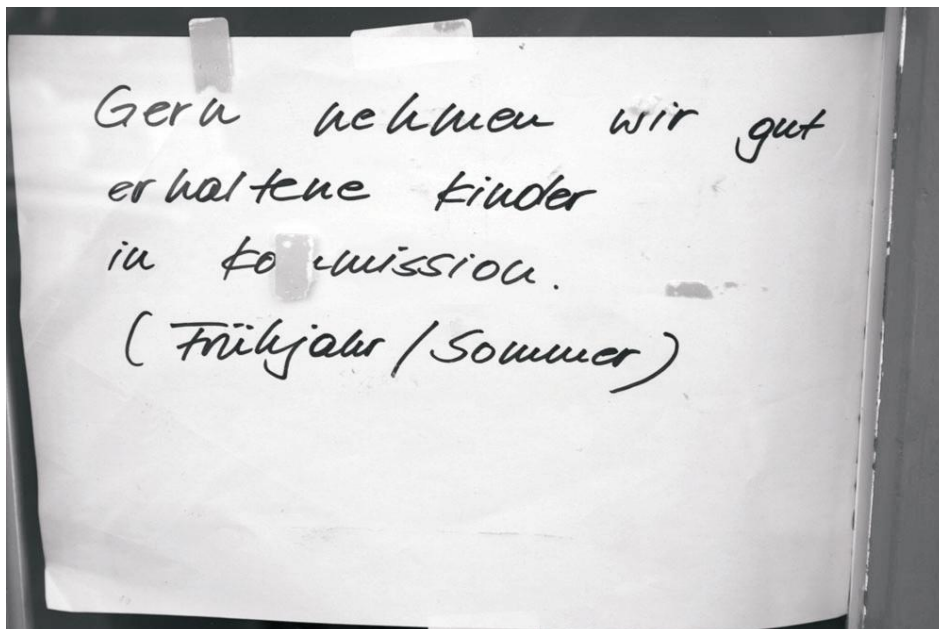 Gern nehmen wir gut
erhaltene Kinder
in Kommission.
(Frühjahr/Sommer)